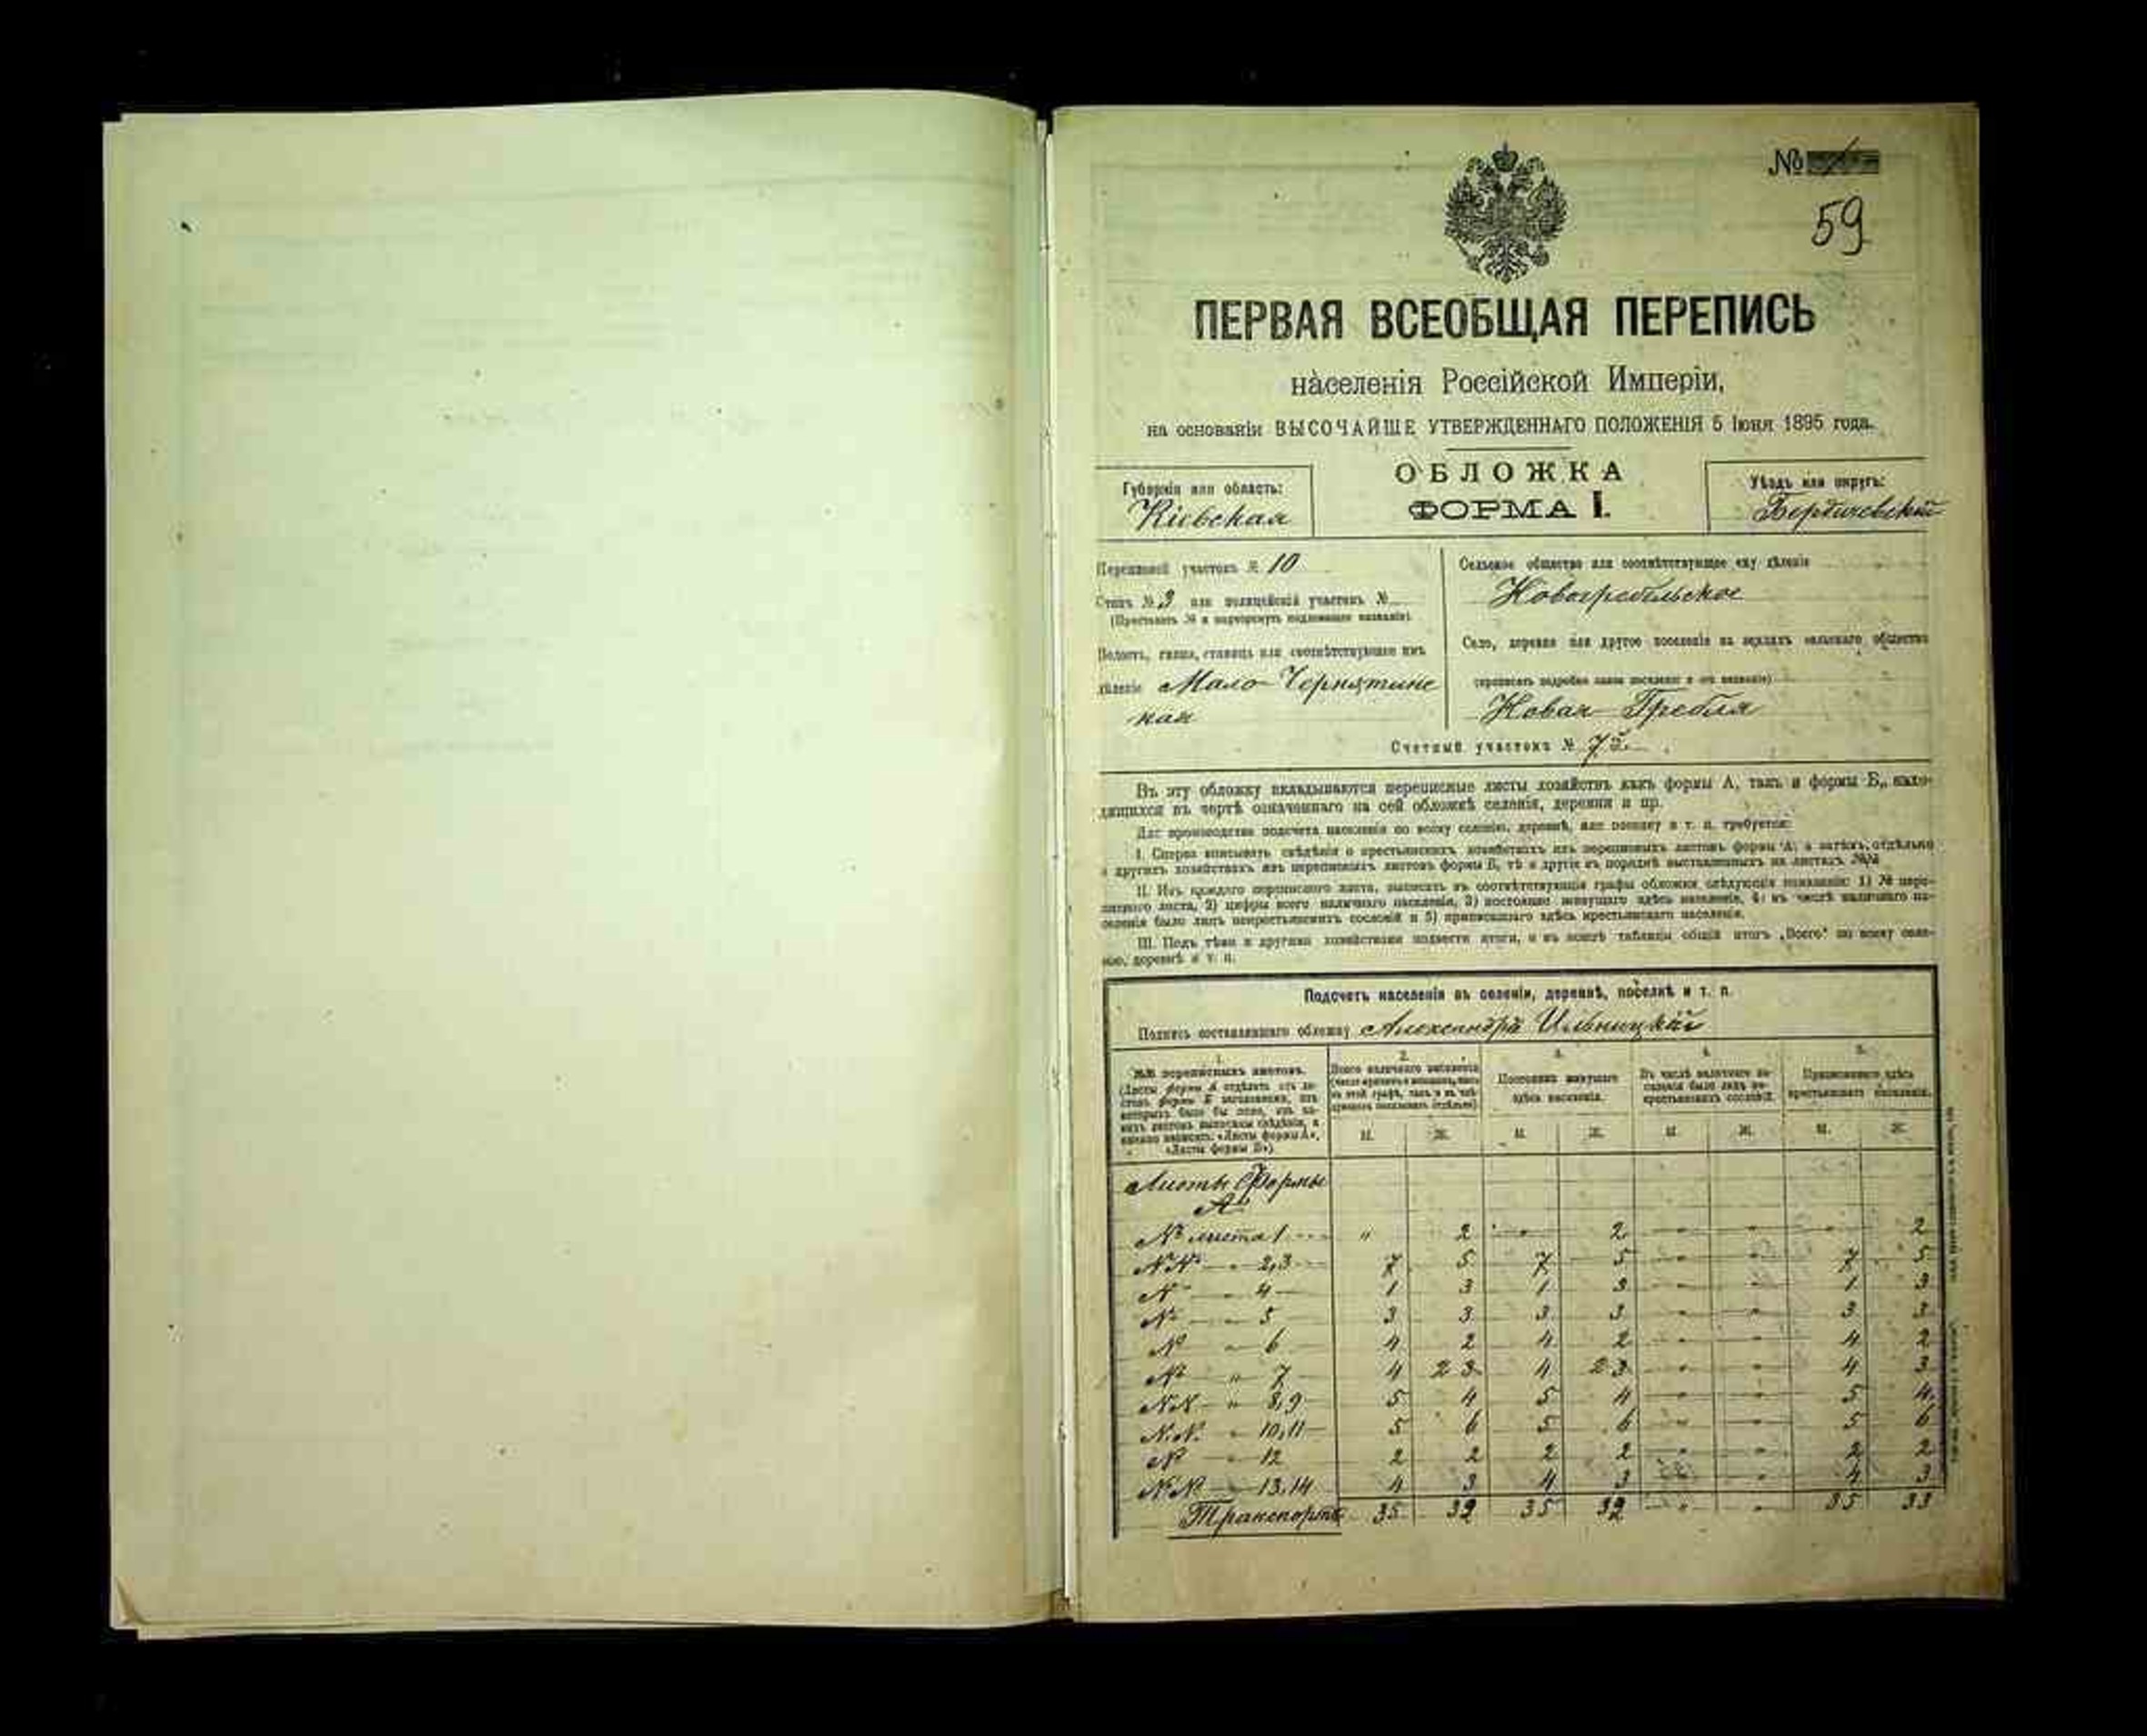 №
59
ПЕРВАЯ ВСЕОБЩАЯ ПЕРЕПИСЬ
населенія Россійской Имперіи,
на основаніи ВЫСОЧАЙШЕ УТВЕРЖДЕННАГО ПОЛОЖЕНІЯ 5 Іюня 1895 года.
ОБЛОЖКА
ФОРМА I.
Губернія или область:
Кіевская
Уѣздъ или округъ:
Бердичевскій
Переписной участокъ № 10
Станъ № 3 или полицейскій участокъ №
(Проставить № и подчеркнуть подлежащее названіе)
Волость, гмина, станица или соотвѣтствующее имъ
дѣленіе Мало-Чернятинс
кая
Сельское общество или соотвѣтствующее ему дѣленіе
Новогребельское
Село, деревня или другое поселеніе на земляхъ сельскаго общества
(прописать подробно какое поселеніе и его названіе)
Новая Гребля
Счетный участокъ №
Въ эту обложку вкладываются переписные листы хозяйствъ какъ формы А, такъ и формы Б, нахо-
дящихся въ чертѣ означеннаго на сей обложкѣ селенія, деревни и пр.
Для производства подсчета населенія по всему селенію, деревнѣ, или поселку и т. п. требуется:
I. Сперва вписывать свѣдѣнія о крестьянскихъ хозяйствахъ изъ переписныхъ листовъ формы А, а затѣмъ, отдѣльно
о другихъ хозяйствахъ изъ переписныхъ листовъ формы Б, тѣ и другіе въ порядкѣ выставленныхъ на листахъ №№
II. Изъ каждаго переписного листа, выписать въ соотвѣтствующія графы обложки слѣдующія показанія: 1) № пере-
писного листа, 2) цифры всего наличнаго населенія, 3) постоянно живущаго здѣсь населенія, 4) въ числѣ наличнаго на-
селенія было лицъ некрестьянскихъ сословій и 5) приписаннаго здѣсь крестьянскаго населенія.
III. Подъ тѣми и другими хозяйствами подвести итоги, и въ концѣ таблицы общій итогъ „Всего" по всему селе-
нію, деревнѣ и т. п.
Подсчетъ населенія въ селеніи, деревнѣ, поселкѣ и т. п.
Подпись составлявшаго обложку Александръ Ильницкій
1. 2. 3. 4. 5.
№№ переписныхъ листовъ.
(Листы формы А отдѣлить отъ ли-
стовъ формы Б заголовками, изъ
которыхъ было бы ясно, изъ ка-
кихъ листовъ выписаны свѣдѣнія, а
именно написать: «Листы формы А»,
«Листы формы Б»)
Всего наличнаго населенія
Постоянно живущаго
здѣсь населенія.
Въ числѣ наличнаго на-
селенія было лицъ не-
крестьянскихъ сословій.
Приписаннаго здѣсь
крестьянскаго населенія.
М. Ж. М. Ж. М. Ж. М. Ж.
Листы Формы
А
№ листа 1 " 2 " 2 " " " 2
№№ " 2,3 7 5 7 5 " " 7 5
№ " 4 1 3 1 3 " " 1 3
№ " 5 3 3 3 3 " " 3 3
№ " 6 4 2 4 2 " " 4 2
№ " 7 4 2 3 4 2 3 " " 4 3
№№ " 8,9 5 4 5 4 " " 5 4
№№ " 10,11 5 6 5 6 " " 5 6
№ " 12 2 2 2 2 " " 2 2
№№ " 13,14 4 3 4 3 4 3
Транспортъ 35 32 35 32 " " 35 33